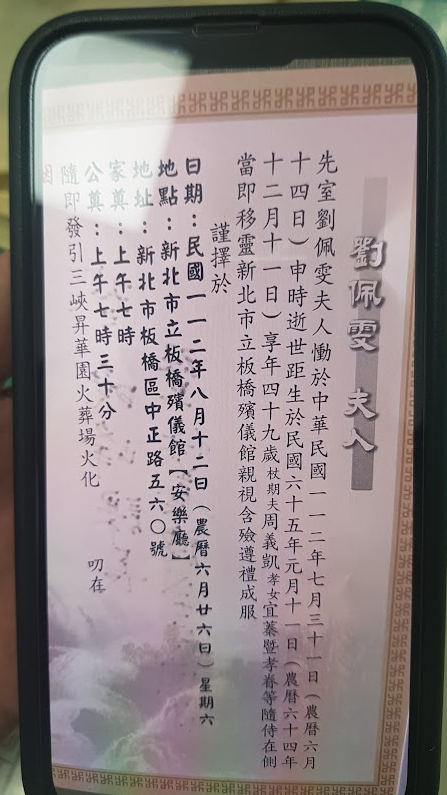 劉佩雯 夫人
先室劉佩雯夫人慟於中華民國一一二年七月三十一日（農曆六月
十四日）申時逝世距生於民國六十五年元月十一日（農曆六十四年
十二月十一日）享年四十九歲杖期夫周義凱孝女宜蓁暨孝眷等隨侍在側
當即移靈新北市立板橋殯儀館親視含殮遵禮成服
謹擇於
日期：民國一一二年八月十二日（農曆六月廿六日）星期六
地點：新北市立板橋殯儀館【安樂廳】
地址：新北市板橋區中正路五六〇號
家奠：上午七時
公奠：上午七時三十分
隨即發引三峽昇華園火葬場火化
叨在